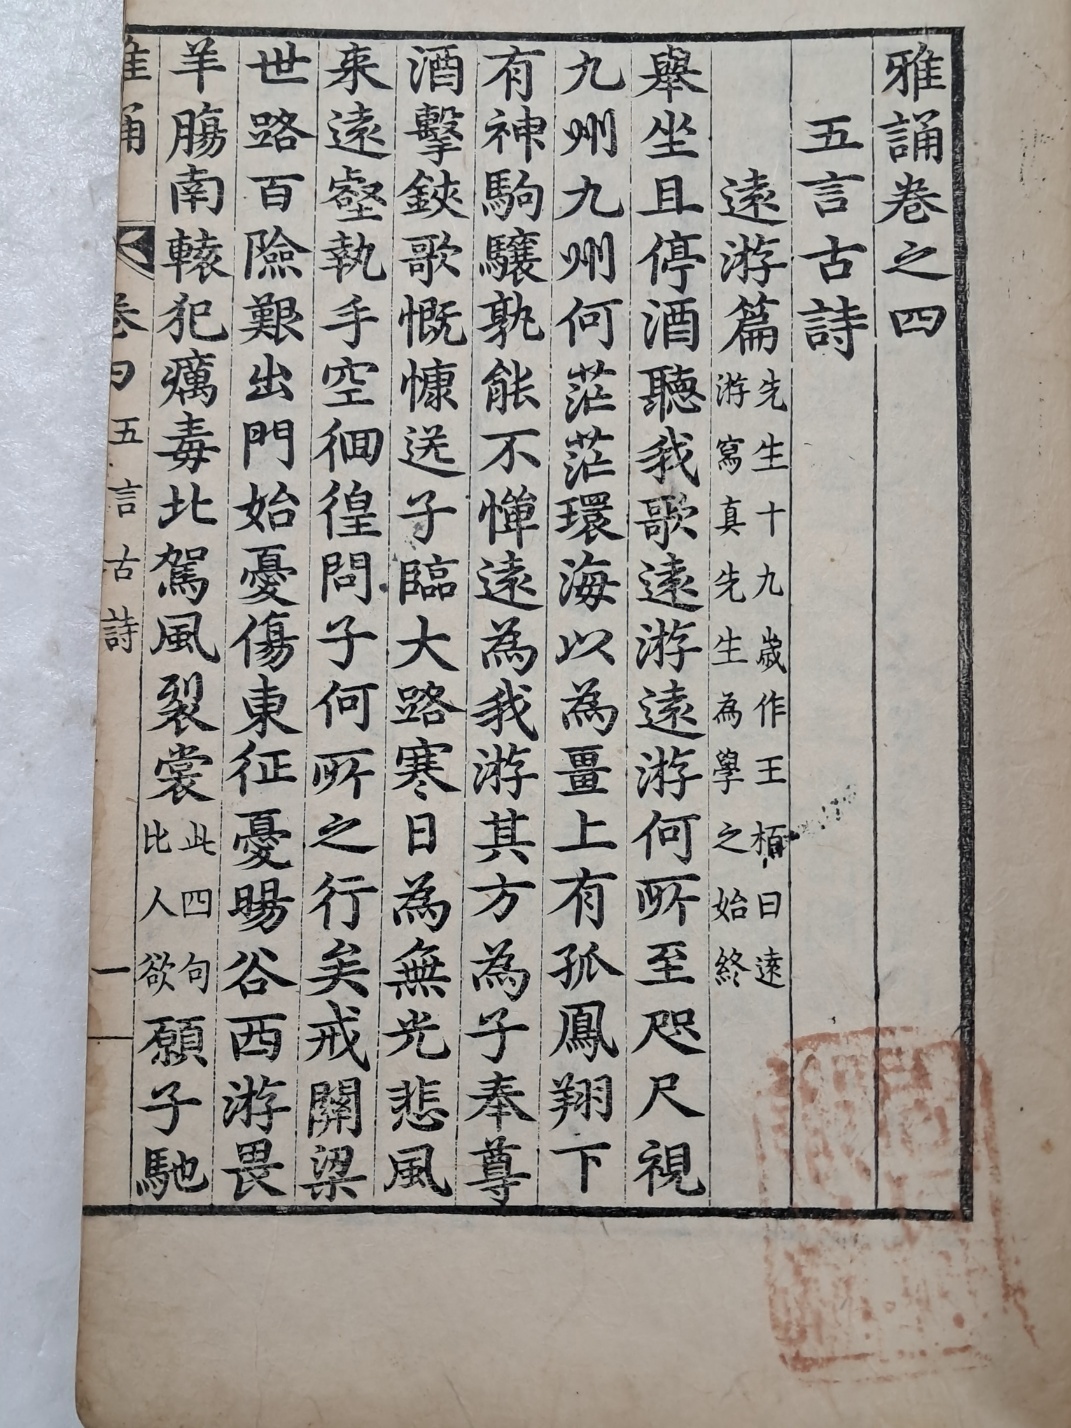 雅誦卷之四
五言古詩
遠游篇
先生十九嵗作王栢曰遠
游寫真先生為學之始終
舉坐且停酒聽我歌遠游遠游何所至咫尺視
九州九州何茫茫環海以為畺上有孤鳳翔下
有神駒驤孰能不憚遠為我游其方為子奉尊
酒擊鋏歌慨慷送子臨大路寒日為無光悲風
来遠壑執手空徊徨問子何所之行矣戒關梁
世路百險艱出門始憂傷東征憂暘谷西游畏
羊膓南轅犯癘毒北駕風裂裳
此四句
比人欲
願子馳
雅誦
卷四
五言古詩
一